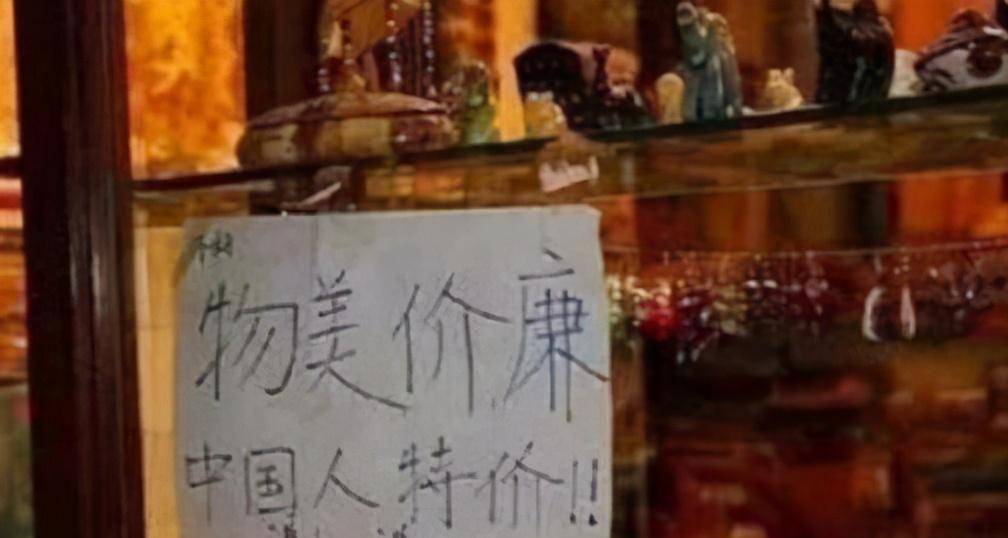 物美价廉
中国人特价!!